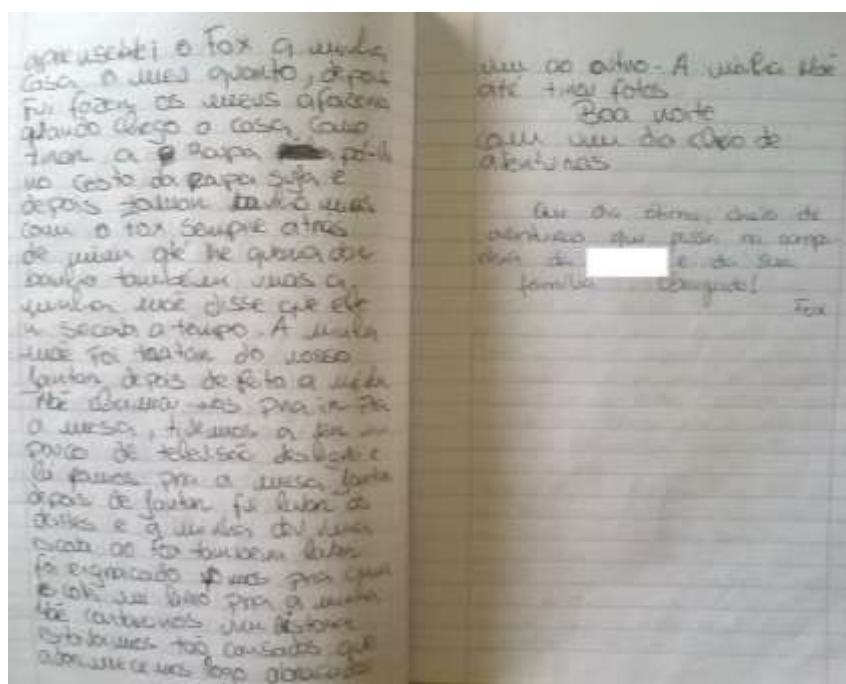 apresentei o Fox a minha
casa o meu quarto, depois
Fui fazer os meus afazeres
quando chego a casa, como
tirar a Roupa pô-la
no cesto da Roupa suja e
depois tomar banho mas
com o fox sempre atras
de mim até he queria dar
banho também mas a
minha mãe disse que ele
n secava a tempo. A minha
mãe Foi tratar do nosso
jantar, depois de feito a minha
Mãe chamou-nos pra ir pra
a mesa, tivemos a ver um
pouco de televisão
lá fomos pra a mesa jantar
depois de jantar fui lavar os
dentes e a minha mãe
escova ao fox também lavar
foi engraçado mas pra cama
escolhi um livro pra a minha
Mãe contar-nos uma história
estavamos tão cansados que
adormecemos logo abraçados
um ao outro. A minha Mãe
até tirou fotos
Boa noite
com um dia cheio de
aventuras
Que dia ótimo, cheio de
aventuras que passei na compa
nhia da e da sua
família Obrigado!
Fox